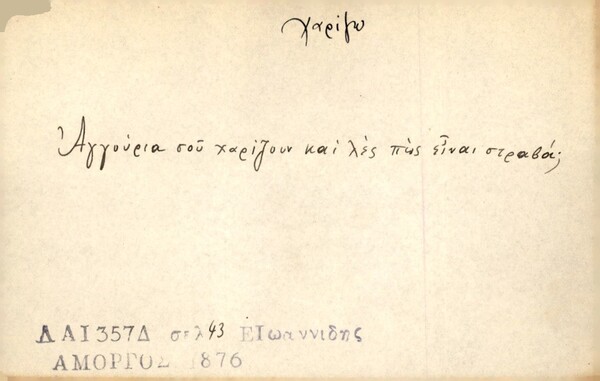 χαρίζω
Ἀγγούρια σοῦ χαρίζουν καὶ λὲς πὼς εἶναι στραβά;
ΔΑΙ357Δ σελ 43 ΕΙωαννιδης
ΑΜΟΡΓΟΣ 1876